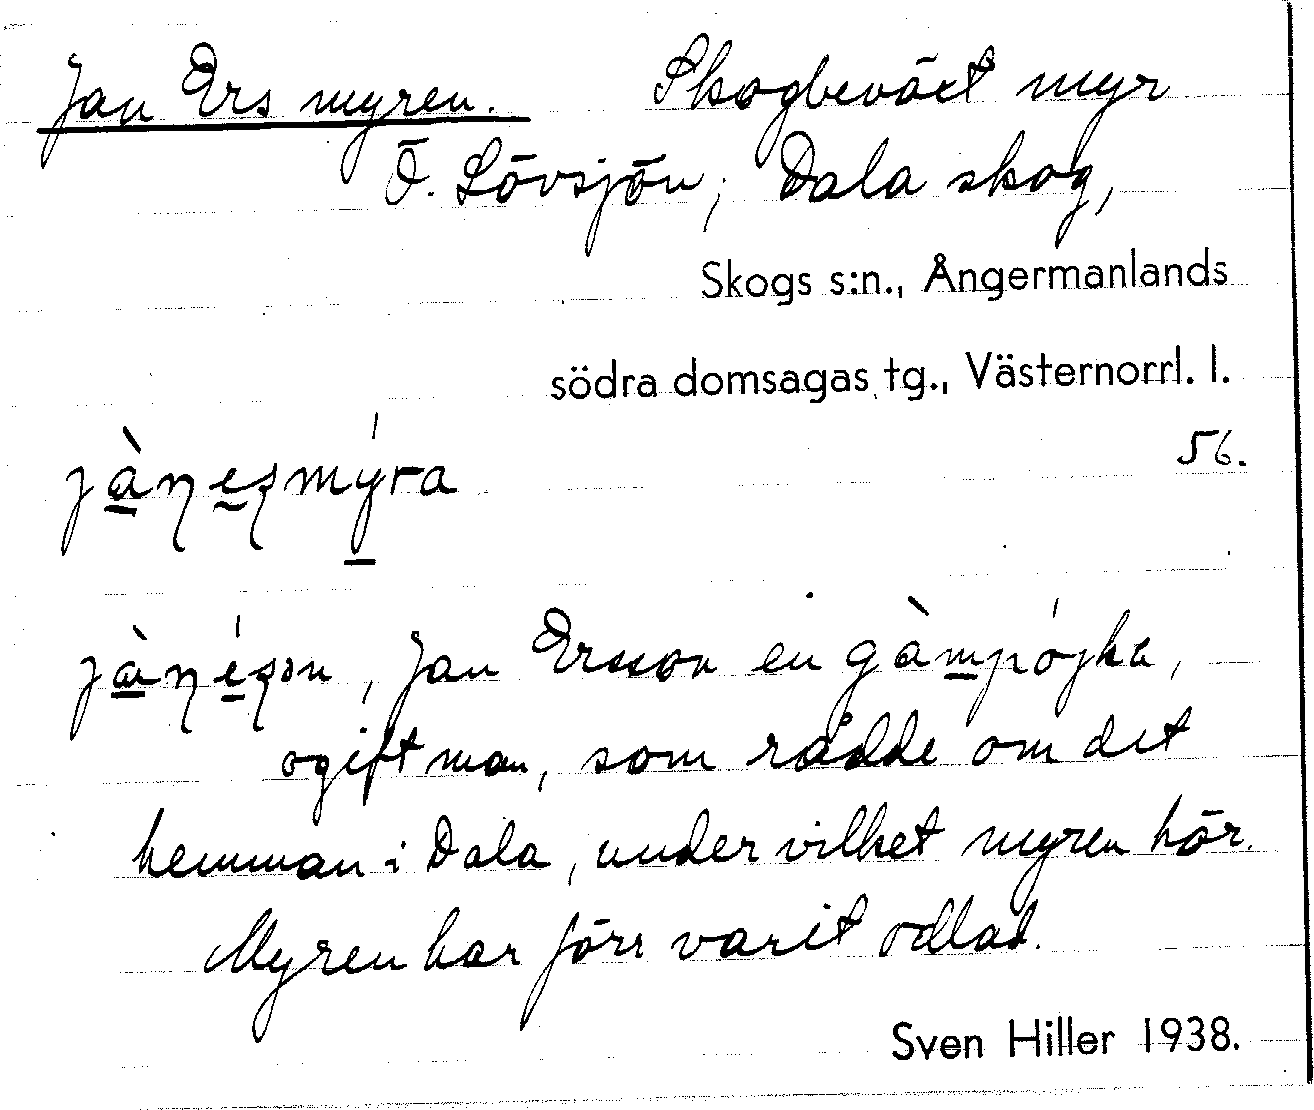 Jan Ers myren. Skogbeväxt myr
Ö. Lövsjön; Dala skog,
Skogs s:n., Ångermanlands
södra domsagas tg., Västernorrl. l.
56.
jàn̨es̨mýra
jàn̨és̨on, Jan Ersson en gàmpójka,
ogift man, som rådde om det
hemman i Dala, under vilket myren hör.
Myren har förr varit odlad.
Sven Hiller 1938.